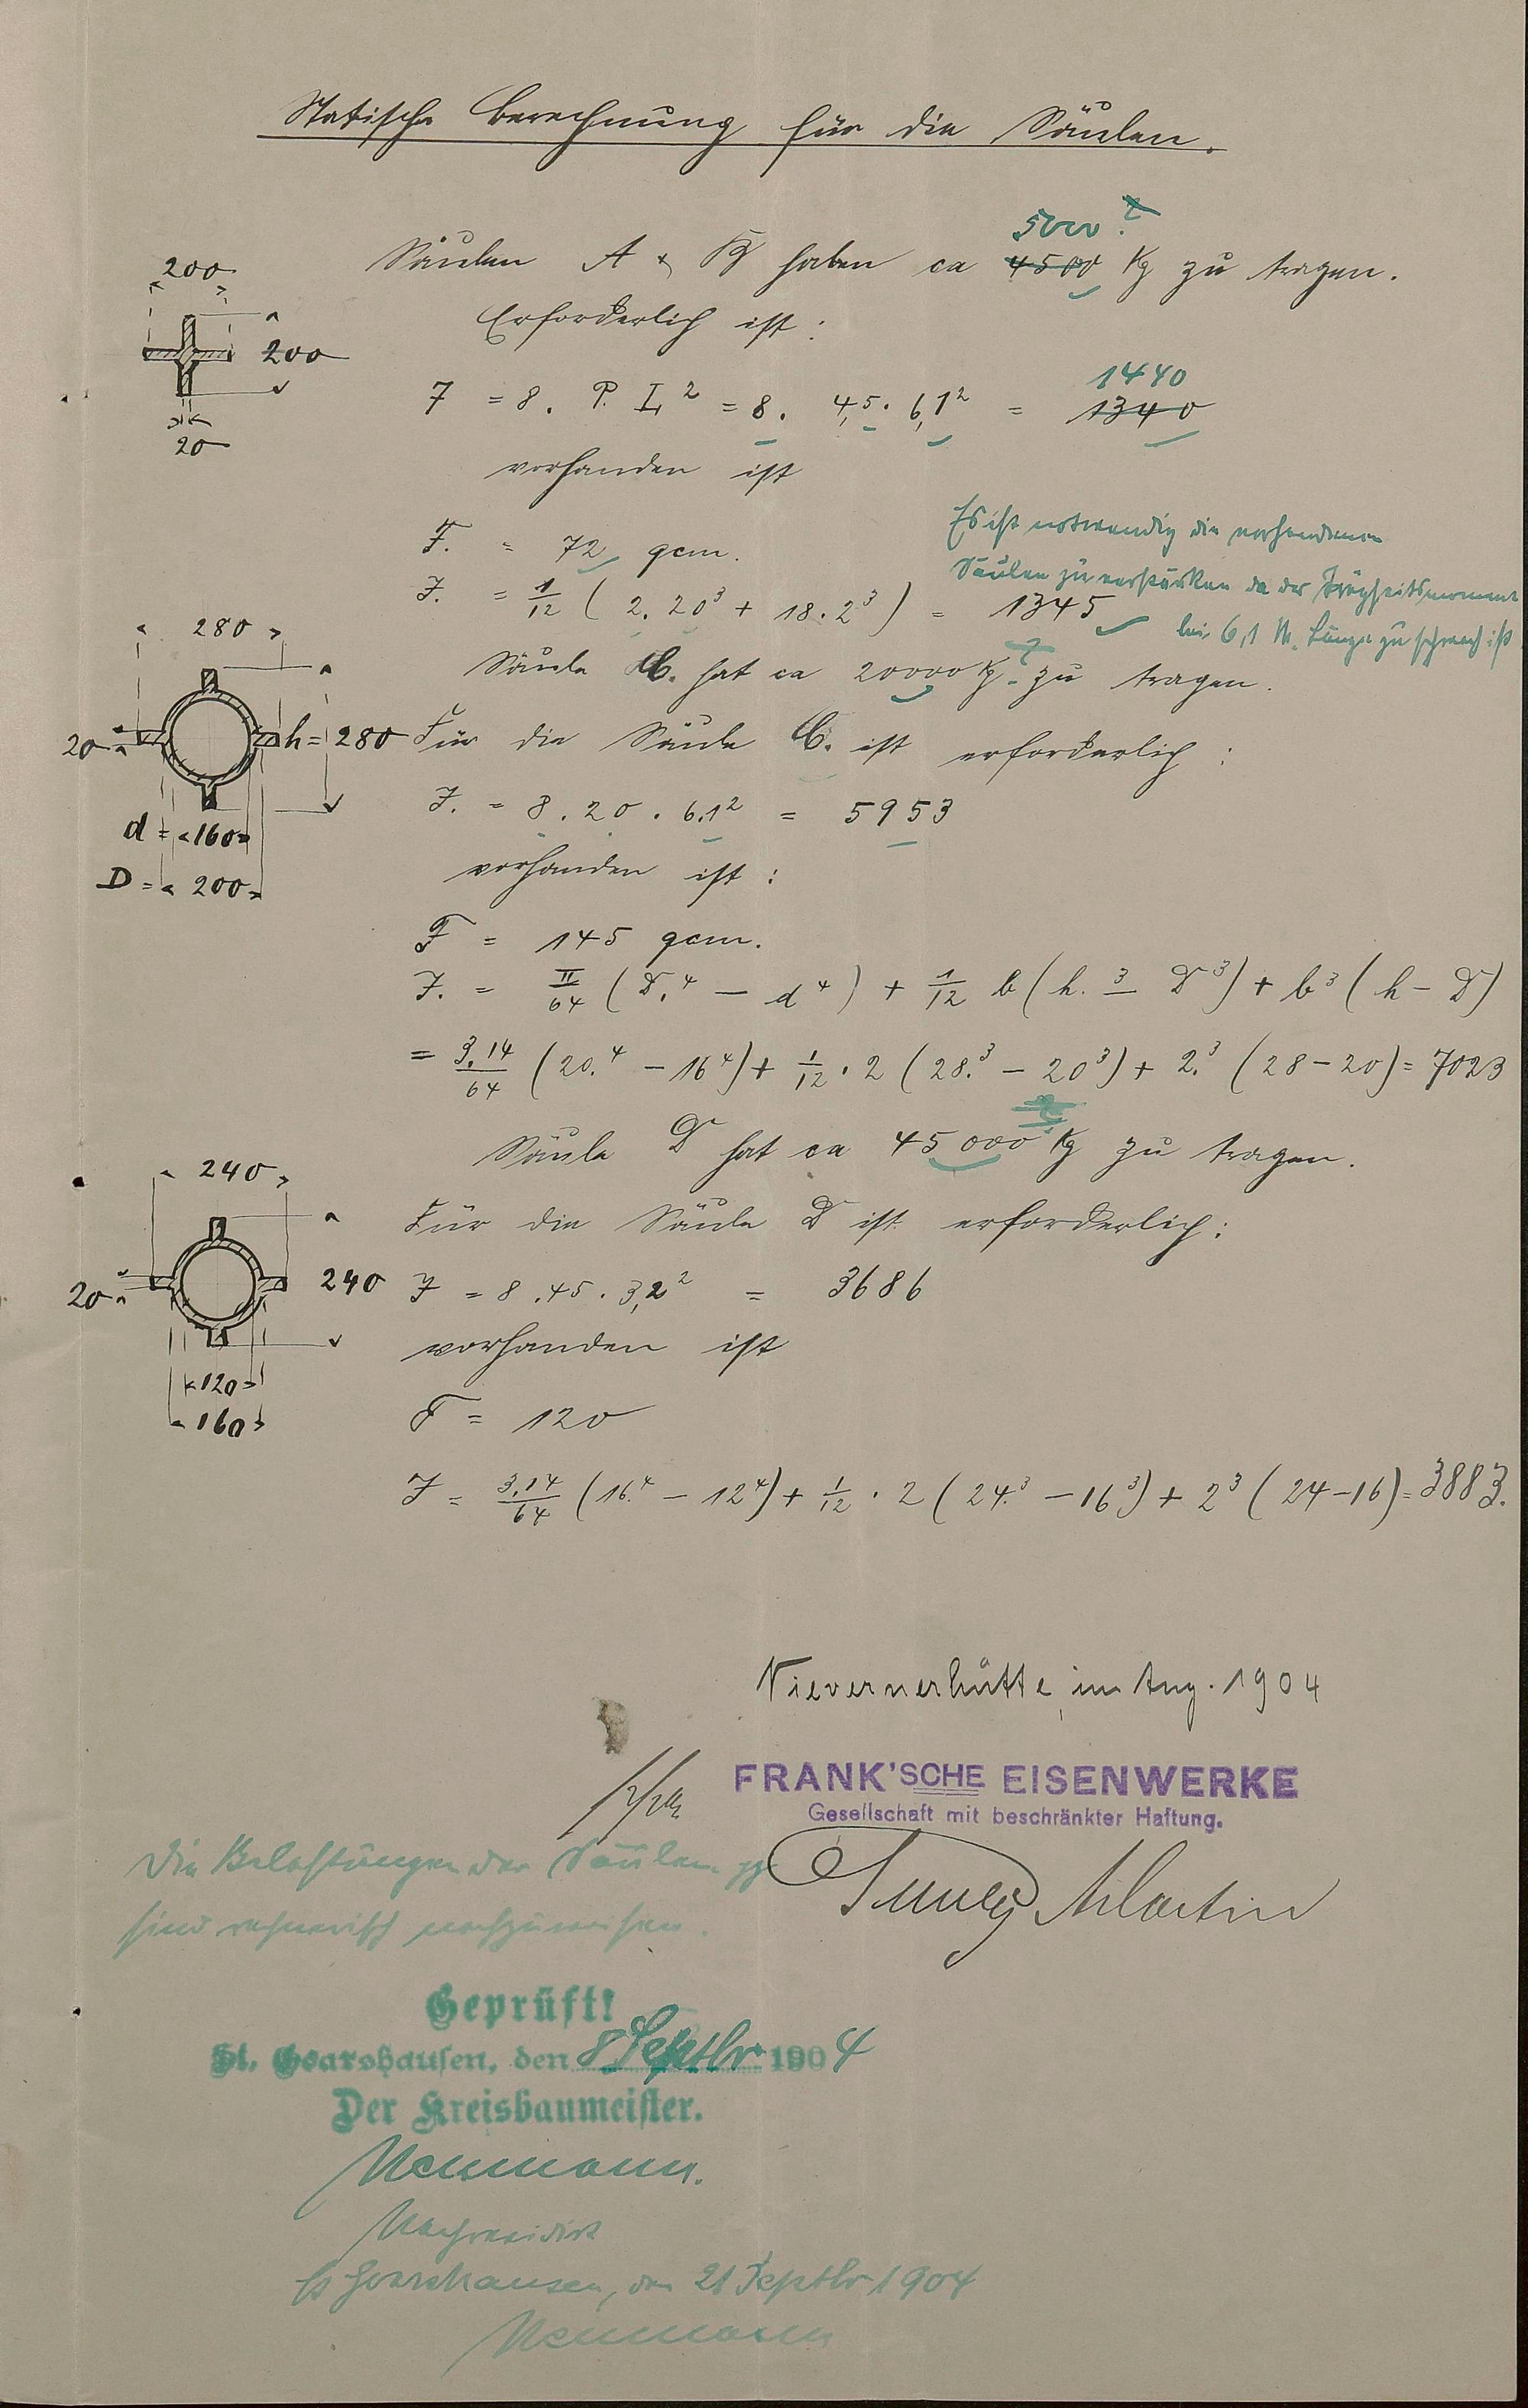 Statische Berechnung für die Säulen.
5000 ?
Säulen A & B haben ca 4500 Kg zu tragen.
200
200
20
Erforderlich ist:
1440
J = 8. P. L² = 8. 4,5. 6,1² = 1340
vorhanden ist
F. = 72 qcm.
Es ist notwendig die vorhandenen
Säulen zu verstärken da das Trägheitsmoment
bei 6,1 M. Länge zu schwach ist
J. = 1/12 (2. 20³ + 18. 2³) = 1345
?
Säule C. hat ca 20000 Kg. zu tragen.
280
20
h = 280
d = 160
D = 200
Für die Säule C. ist erforderlich:
J. = 8. 20. 6.1² = 5953
vorhanden ist:
F = 145 qcm.
J. = π/64 (D.⁴ - d⁴) + 1/12 b (h.³ - D³) + b³ (h - D)
= 3.14/64 (20.⁴ - 16⁴) + 1/12 . 2 (28.³ - 20³) + 2.³ (28 - 20) = 7023
Säule D hat ca 45000 Kg zu tragen.
240
20
240
120
160
Für die Säule D ist erforderlich:
J = 8. 45. 3,2² = 3686
vorhanden ist
F = 120
J = 3.14/64 (16.⁴ - 12⁴) + 1/12 . 2 (24.³ - 16³) + 2³ (24 - 16) = 3883.
Nievernerhütte, im Aug. 1904
FRANK'SCHE EISENWERKE
Gesellschaft mit beschränkter Haftung.
Martin
Die Belastungen der Säulen pp
sind rechnerisch nachzuweisen.
Geprüft!
St. Goarshausen, den 8 Septbr 1904
Der Kreisbaumeister.
Neumann.
Nachrevidirt
St Goarshausen, den 21 Septbr 1904
Neumann